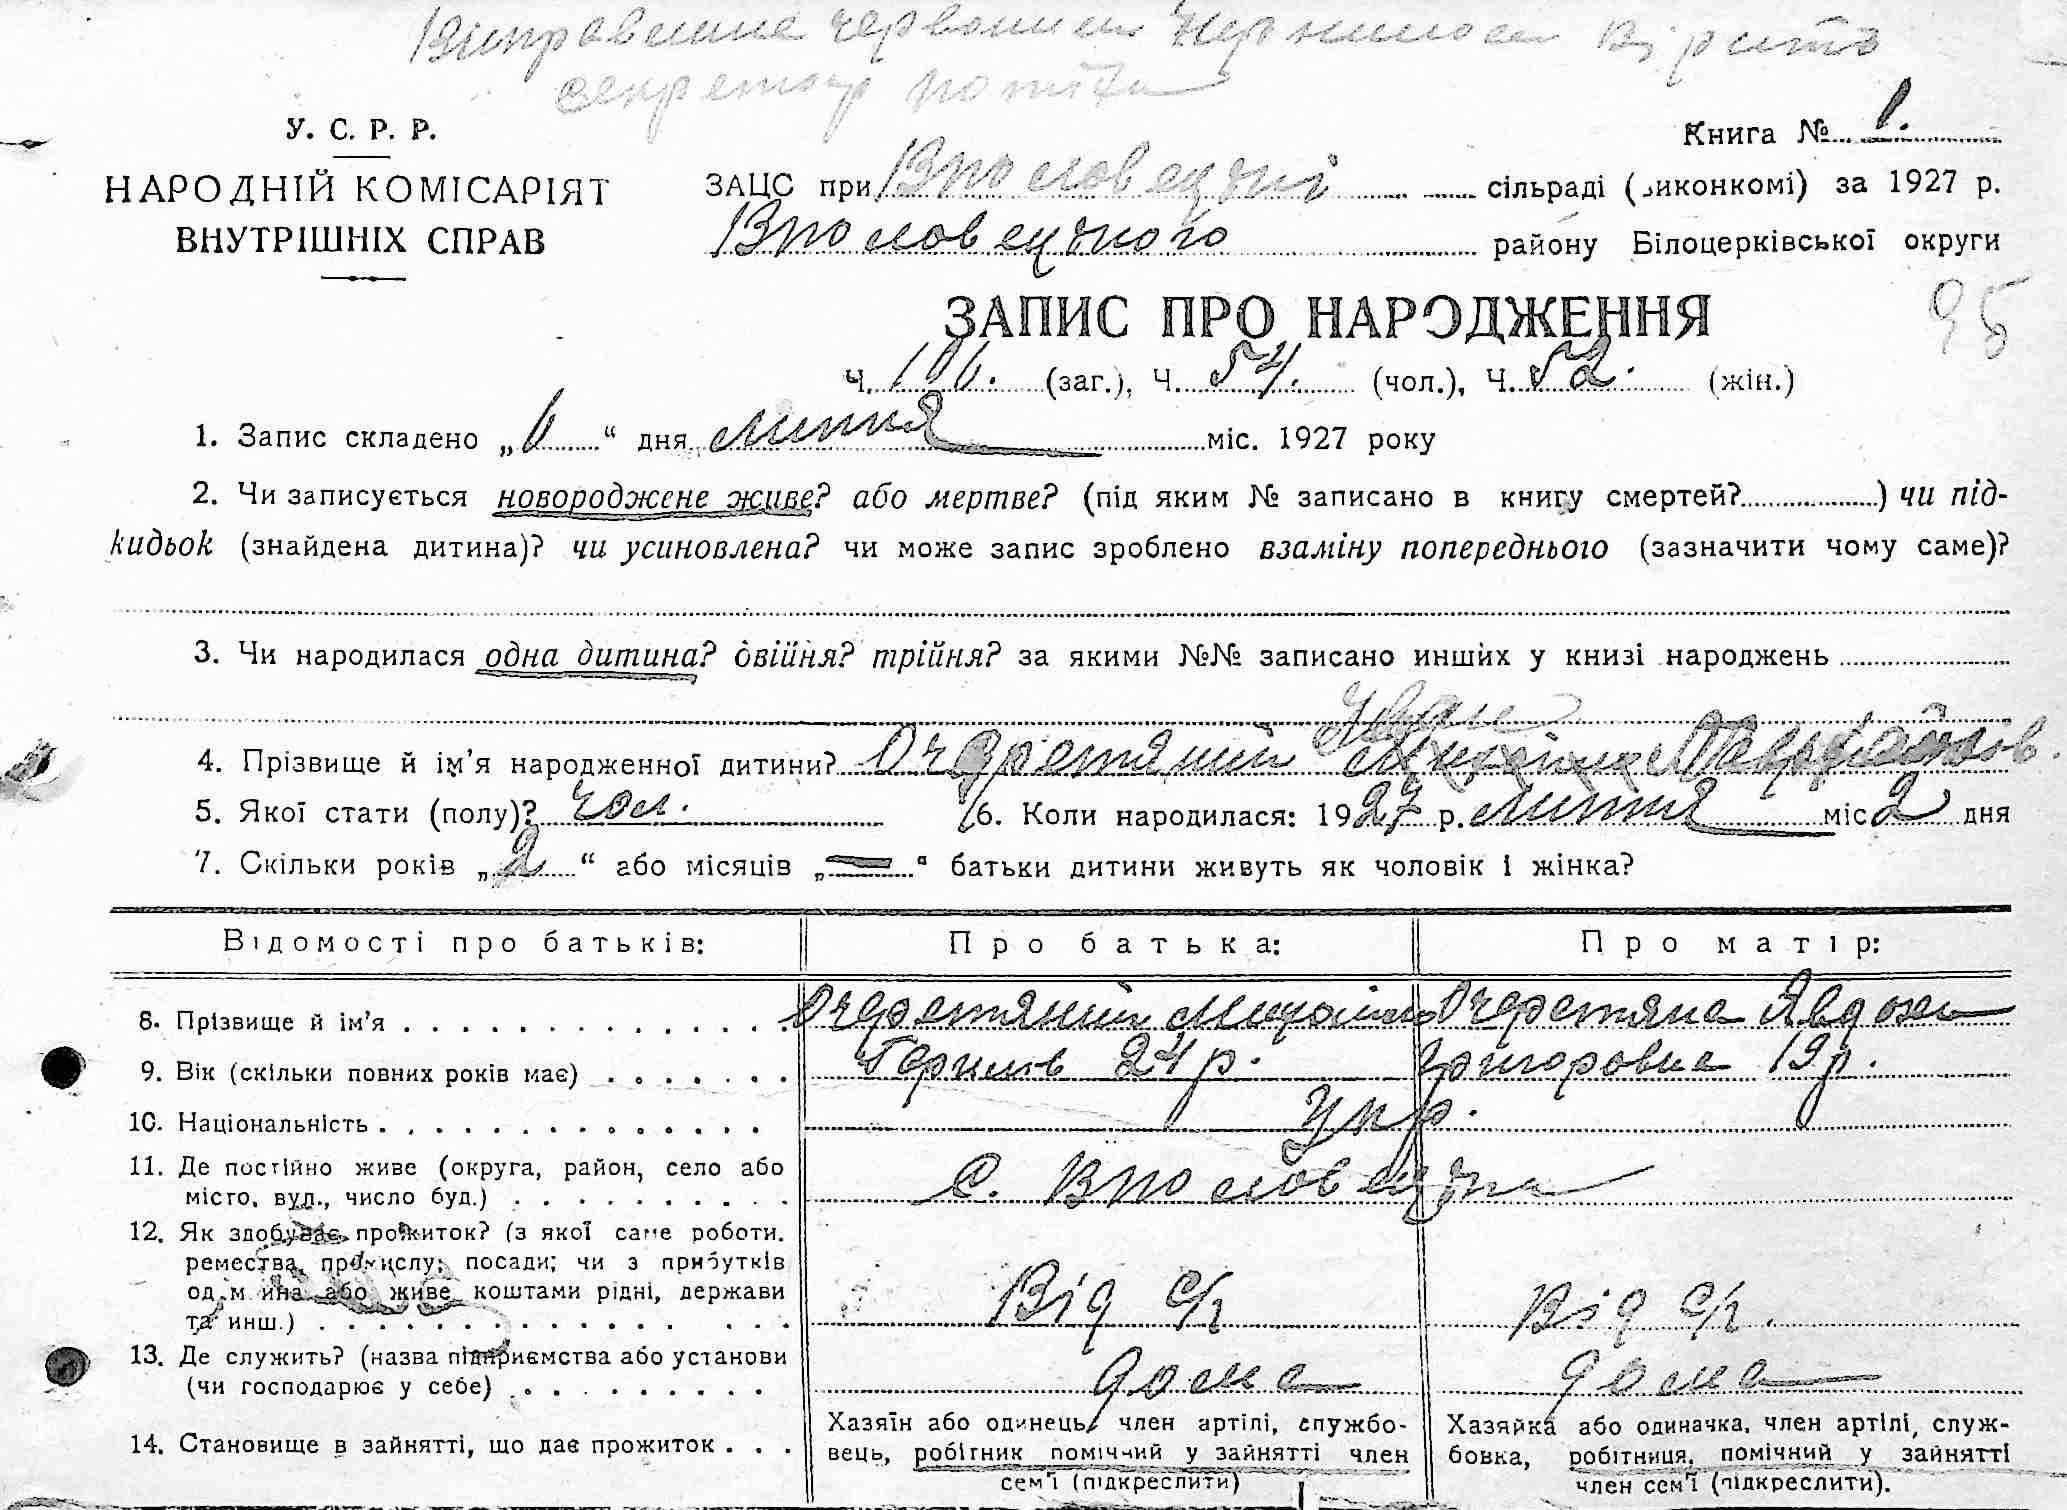 Виправлене червоним чернилом вірить
секретар
У. С. Р. Р.
НАРОДНІЙ КОМІСАРІЯТ
ВНУТРІШНІХ СПРАВ
Книга № 1.
ЗАЦС при Впословецькі сільраді (виконкомі) за 1927 р.
Впословецького району Білоцерківської округи
95
ЗАПИС ПРО НАРОДЖЕННЯ
Ч. 106. (заг.), Ч. 54. (чол.), Ч. 52. (жін.)
1. Запис складено „6“ дня липня міс. 1927 року
2. Чи записується новороджене живе? або мертве? (під яким № записано в книгу смертей?) чи під-
кидьок (знайдена дитина)? чи усиновлена? чи може запис зроблено взаміну попереднього (зазначити чому саме)?
3. Чи народилася одна дитина? двійня? трійня? за якими №№ записано инших у книзі народжень
Іван
4. Прізвище й ім’я народженної дитини? Очеретяний
5. Якої стати (полу)? чол. 6. Коли народилася: 1927 р. липня міс 2 дня
7. Скільки років „2“ або місяців „—“ батьки дитини живуть як чоловік і жінка?
Відомості про батьків: Про батька: Про матір:
8. Прізвище й ім’я Очеретяний Михайло Очеретяна Явдоха
9. Вік (скільки повних років має) 24 р. Григоровна 19 р.
10. Національність Укр.
11. Де постійно живе (округа, район, село або
місто, вул., число буд.) С.
12. Як здобуває прожиток? (з якої саме роботи,
ремества, промислу; посади; чи з прибутків
од майна або живе коштами рідні, держави
та инш.) Від с/г Від с/г.
13. Де служить? (назва підприємства або установи
(чи господарює у себе) дома дома
14. Становище в зайнятті, що дає прожиток
Хазяїн або одинець, член артілі, службо-
вець, робітник помічний у зайнятті член
сем’ї (підкреслити)
Хазяйка або одиначка, член артілі, служ-
бовка, робітниця, помічний у зайнятті
член сем’ї (підкреслити).